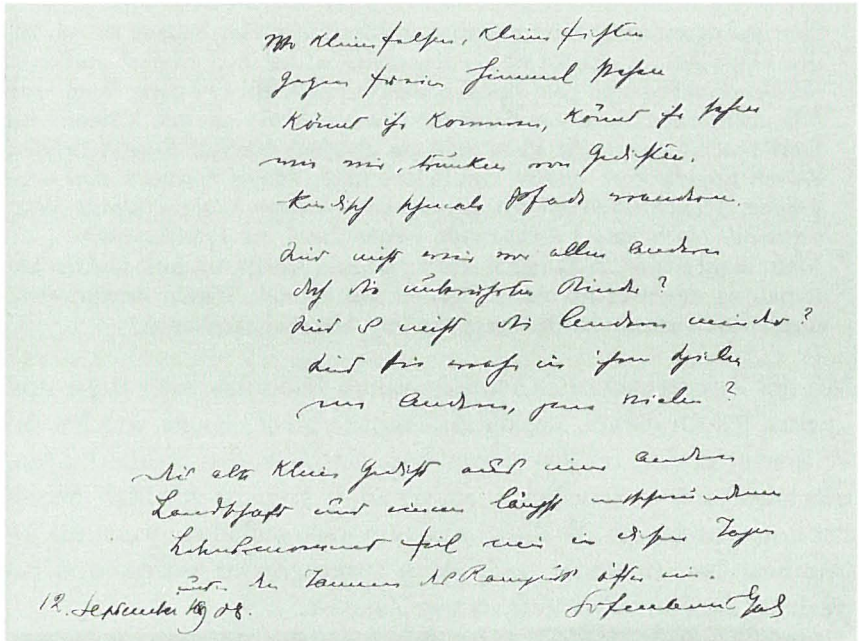 Wo kleine Felsen, kleine Fichten
gegen freien Himmel stehen
könnt ihr kommen, könnt ihr sehen
wie wir, trunken von Gedichten,
kindlich schmale Pfade wandern.
Sind nicht wir vor allen andern
doch die unberührten Kinder?
Sind es nicht die Andern minder?
Sind sie wahr in ihren Spielen
Andern, jene vielen?
Dies alte kleine Gedicht aus einer anderen
Landschaft und einem längst entschwundenen
Lebensmoment fiel mir in diesen Tagen
unter den Tannen des öfter ein.
12. September 1908. Hofmannsthal